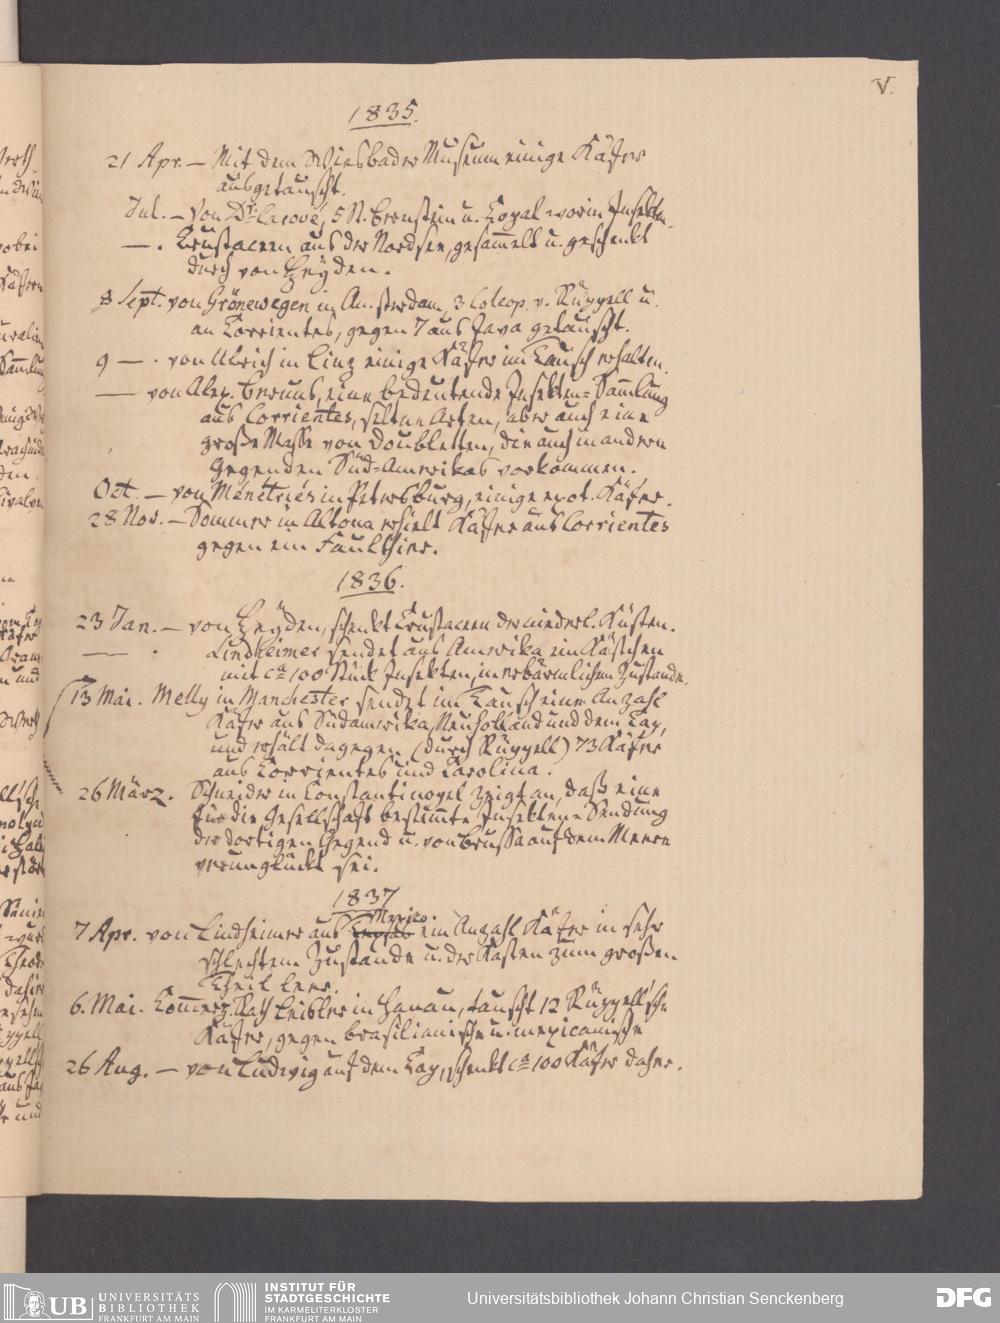 V.
1835.
21 Apr. — Mit dem Wiesbader Museum einige Käfer
ausgetauscht.
Jul. — Von Dr. 5 St. Bernstein u. Copal worin Insekten.
— . Crustaceen aus der Nordsee, gesam̄elt u. geschenkt
durch von Heÿden.
8 Sept. von Grönewegen in Amsterdam, 3 Coleop. v. Rüppell u.
an Corrientes, gegen 7 aus Java getauscht.
9 — . von Ulrich in Linz einige Käfer im Tausch erhalten.
— von Alex. eine bedeutende Insekten-Sam̄lung
aus Corrientes, seltene Arten, aber auch eine
große Masse von Doubletten, die auch in andern
Gegenden Süd-Amerikas vorkommen.
Oct. — von Ménétriés in Petersburg, einige exot. Käfer.
28 Nov. — Sommer in Altona erhielt Käfer aus Corrientes
gegen ein Faulthier.
1836.
23 Jan. — von Heÿden, schenkt Crustaceen der niederl. Küsten.
— . Lindheimer sendet aus Amerika ein Kästchen
mit ca 100 Stück Insekten, in erbärmlichem Zustande.
13 Mai. Melly in Manchester sendet im Tausch eine Anzahl
Käfer aus Südamerika, Neuholland und dem Cap,
und erhält dagegen (durch Rüppell) 73 Käfer
aus Corrientes und Carolina.
26 März. Schneider in Constantinopel zeigt an, daß eine
für die Gesellschaft bestim̄te Insekten-Sendung
der dortigen Gegend u. von Brussa auf dem Meere
verunglückt sei.
1837
Mexico.
7 Apr. von Lindheimer aus ein Anzahl Käfer in sehr
schlechtem Zustande u. der Kasten zum großen
Theil leer.
6. Mai. Com̄erz. Rath Leisler in Hanau, tauscht 12 Rüppell'sche
Käfer, gegen brasilianische u. mexicanische
26 Aug. — von Ludwig auf dem Cap, schenkt ca 100 Käfer daher.
UB UNIVERSITÄTS
BIBLIOTHEK
FRANKFURT AM MAIN
INSTITUT FÜR
STADTGESCHICHTE
IM KARMELITERKLOSTER
FRANKFURT AM MAIN
Universitätsbibliothek Johann Christian Senckenberg
DFG